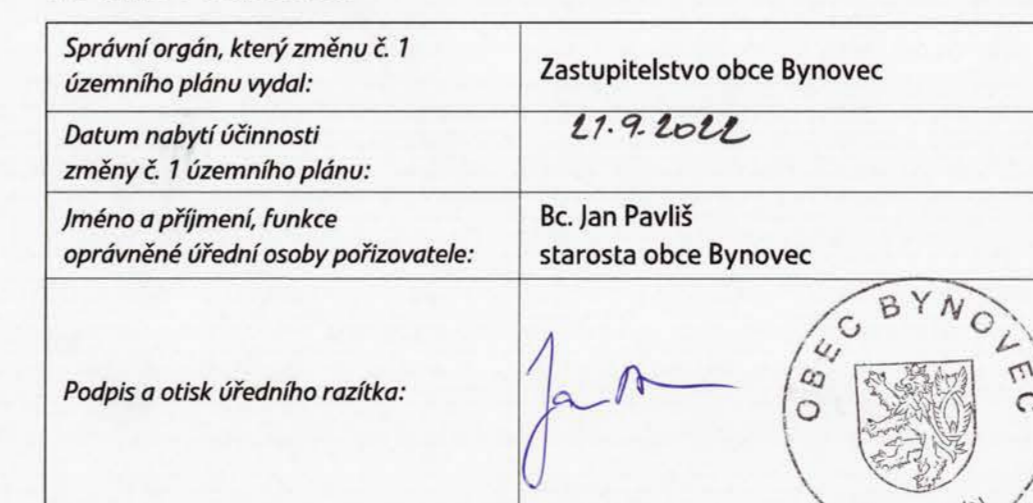 Správní orgán, který změnu č. 1
územního plánu vydal:
Zastupitelstvo obce Bynovec
Datum nabytí účinnosti
změny č. 1 územního plánu:
21.9.2022
Jméno a příjmení, funkce
oprávněné úřední osoby pořizovatele:
Bc. Jan Pavliš
starosta obce Bynovec
Podpis a otisk úředního razítka:
OBEC BYNOVEC